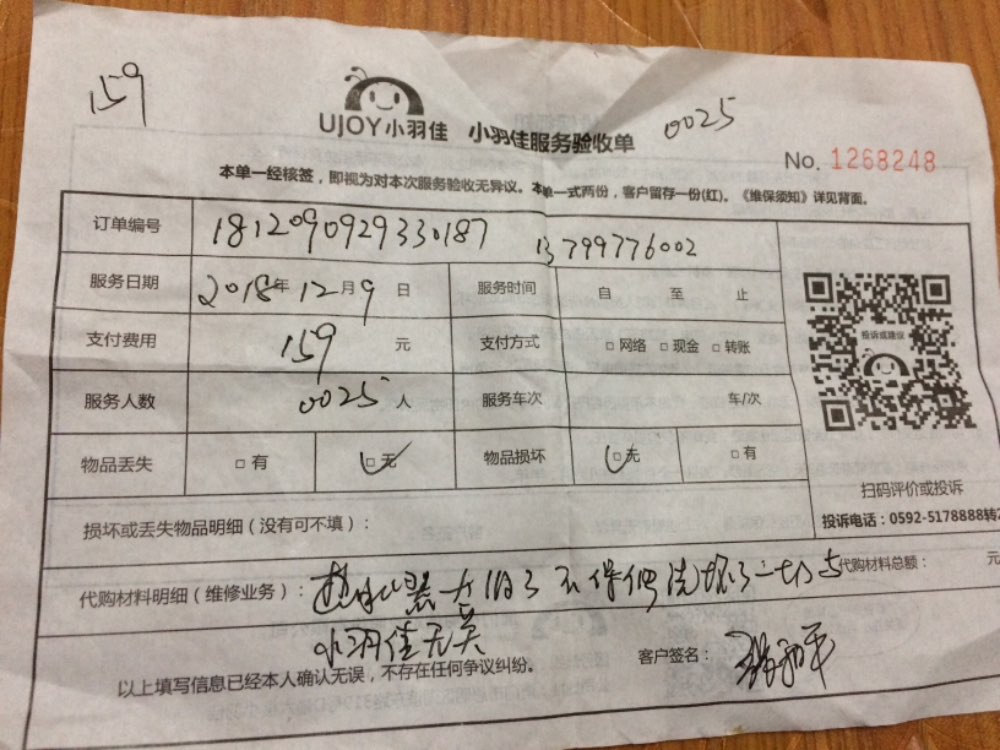 159
UJOY小羽佳 小羽佳服务验收单 0025
No. 1268248
本单一经核签，即视为对本次服务验收无异议。本单一式两份，客户留存一份(红)。《维保须知》详见背面。
订单编号 1812090929330187 13799776002
服务日期 2018年12月9日 服务时间 自 至 止
支付费用 159 元 支付方式 □网络 □现金 □转账
服务人数 0025 人 服务车次 车/次
物品丢失 □有 □无 物品损坏 □无 □有
投诉或建议
扫码评价或投诉
投诉电话：0592-5178888转2
损坏或丢失物品明细（没有可不填）：
代购材料明细（维修业务）： 热水器 了 不保 洗坏了一切与 代购材料总额： 元
小羽佳无关
以上填写信息已经本人确认无误，不存在任何争议纠纷。 客户签名：